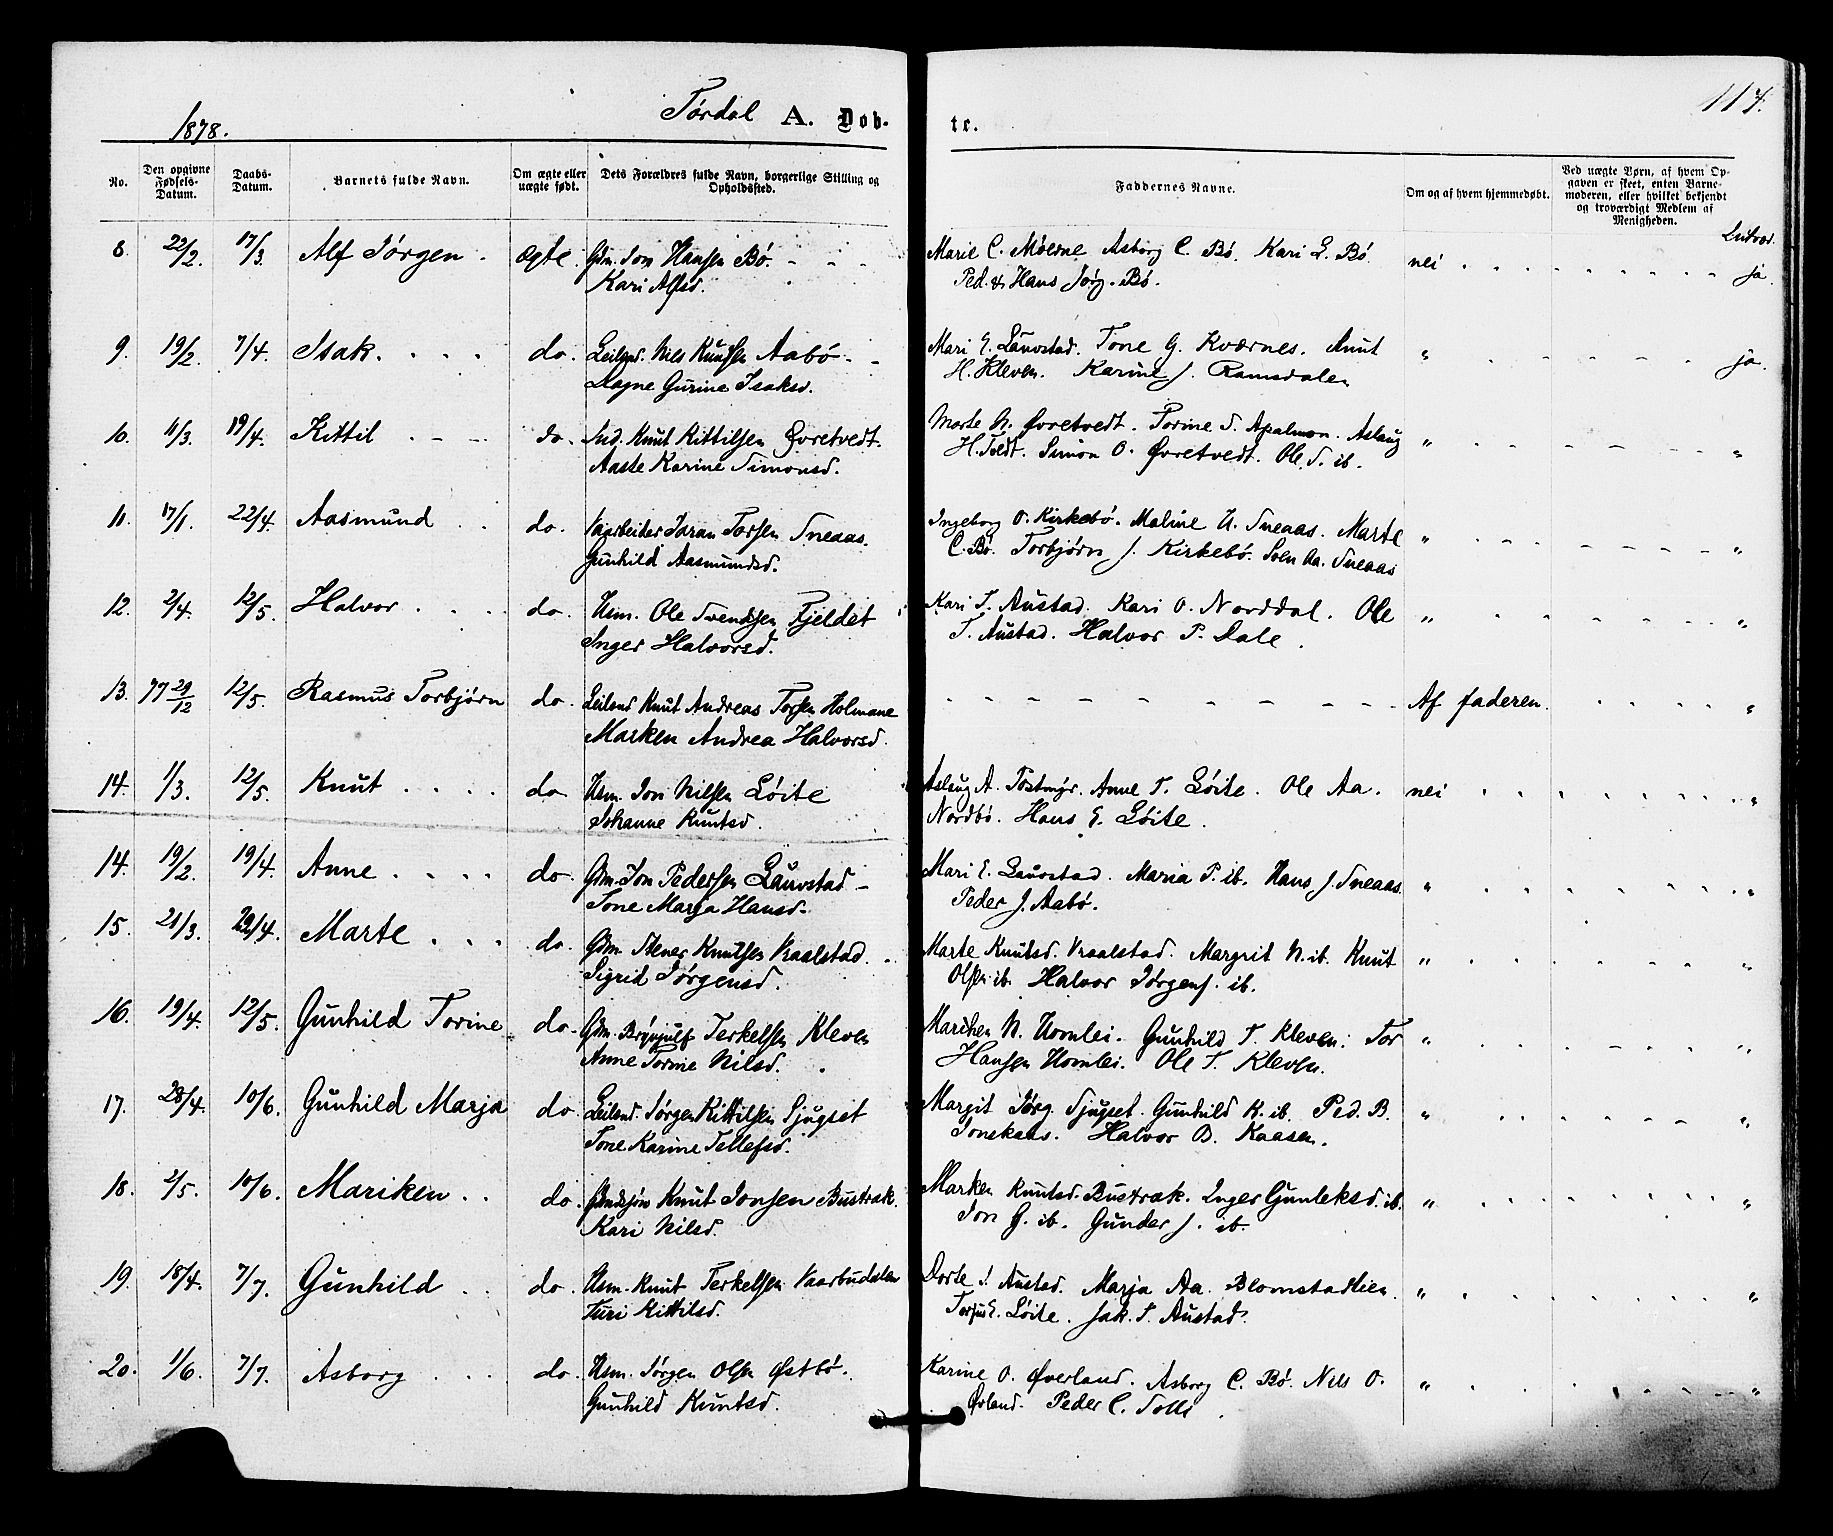 1878. Tørdal A. Døb- te. 117.
No. Den opgivne Fødsels-Datum. Daabs-Datum. Barnets fulde Navn. Om ægte eller uægte født. Dets Forældres fulde Navn, borgerlige Stilling og Opholdssted. Faddernes Navne. Om og af hvem hjemmedøbt. Ved uægte Børn, af hvem Opgaven er skeet, enten Barnemoderen, eller hvilket bekjendt og troværdigt Medlem af Menigheden.
8. 22/2. 17/3. Alf Jørgen. ægte. Gdm. Jon Hansen Bø. Marie C. Moerne Asborg C. Bø. Kari L. Bø. nei ja.
Kari Alfsd. Ped. & Hans Jørg. Bø.
9. 19/2. 7/4. Isak. do. Leilænd. Nils Knutsen Aabø. Mari E. Lauvstad. Tone G. Kværnes. Knut " ja.
Aagne Gurine Isaksd. H. Kleven. Karine J. Ramsdalen
10. 11/3. 19/4. Kittil do. Ind. Knut Kittilsen Øvretvedt. Marte N. Øvretvedt. Torine S. Apalmon. Aslaug " "
Aaste Karine Simonsd. H. Tvedt. Simon O. Øvretvedt. Ole S. ib.
11. 17/1. 22/4. Aasmund do. Jaran Torsen Sneaas. Ingeborg O. Kirkebø. Maline H. Sneaas. Marte " "
Gunhild Aasmundsd. C. Bø. Torbjørn J. Kirkebø. Sven Aa. Sneaas
12. 2/4. 12/5. Halvor do. Hsm. Ole Svendsen Fjeldet Kari T. Austad. Kari O. Norddal. Ole " "
Inger Halvorsd. T. Austad. Halvor P. Dale.
13. 77 29/12 12/5. Rasmus Torbjørn do. Leilænd Knut Andreas Torsen Holmane Af faderen. "
Marken Andrea Halvorsd.
14. 1/3. 12/5. Knut do Hsm. Jon Nilsen Løite Aslaug A. Tostmyr. Anne T. Løite. Ole Aa. nei "
Johanne Knutsd. Nordbø. Hans E. Løite.
14. 19/2. 19/4. Anne do. Gdm. Jon Pedersen Lauvstad Mari E. Lauvstad. Maria P. ib. Hans J. Sneaas. " "
Tone Marja Hansd. Peder J. Aabø.
15. 21/3. 22/4. Marte do. Gdm. Stener Knutsen Vraalstad. Marte Knutsd. Vraalstad. Margrit N. ib. Knut " "
Sigrid Jørgensd. Olsen ib. Halvor Jørgens. ib.
16. 19/4. 12/5. Gunhild Torine do. Gdm. Brynjulf Terkelsen Kleven Marthen N. Homlei. Gunhild T. Kleven. Tor " "
Anne Torine Nilsd. Hansen Homlei. Ole T. Kleven.
17. 28/4. 10/6. Gunhild Marja do. Leilænd. Jørgen Kittilsen Sjugset Margit Jørg. Sjugset. Gunhild K. ib. Ped. B. " "
Tone Karine Tellefsd. Jonskaas. Halvor B. Kaasen.
18. 2/5. 10/6. Mariken do. Knut Jonsen Bustrak. Marken Knutsd. Bustrak. Inger Gunleksd. ib. " "
Kari Nilsd. Jon G. ib. Gunder J. ib.
19. 18/4. 7/7. Gunhild do. Hsm. Knut Terkelsen Vaarbudalen Dorte J. Austad. Marja Aa. Blomstadlien. " "
Turi Kittilsd. Torjus E. Løite. Jak. T. Austad.
20. 1/6. 7/7. Asborg do. Hsm. Jørgen Olsen Østbø. Karine O. Øverland. Asborg C. Bø. Nils O. " "
Gunhild Knutsd. Øvland. Peder C. Tolli.